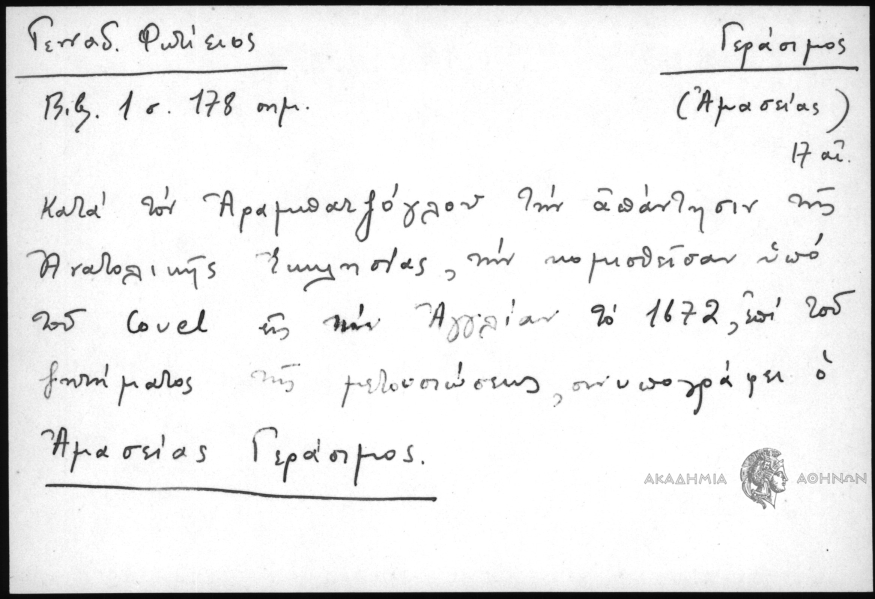 Γενναδ. Φωτίειος
Γεράσιμος
Βιβ. 1 σ. 178 σημ.
(Ἀμασείας)
17 αἰ.
Κατά τόν Ἀραμπατζόγλου τήν ἀπάντησιν τῆς
Ἀνατολικῆς Ἐκκλησίας, τήν κομισθεῖσαν ὑπό
τοῦ Covel εἰς τήν Ἀγγλίαν τό 1672, ἐπί τοῦ
ζητήματος τῆς μετουσιώσεως, συνυπογράφει ὁ
Ἀμασείας Γεράσιμος.
ΑΚΑΔΗΜΙΑ ΑΘΗΝΩΝ